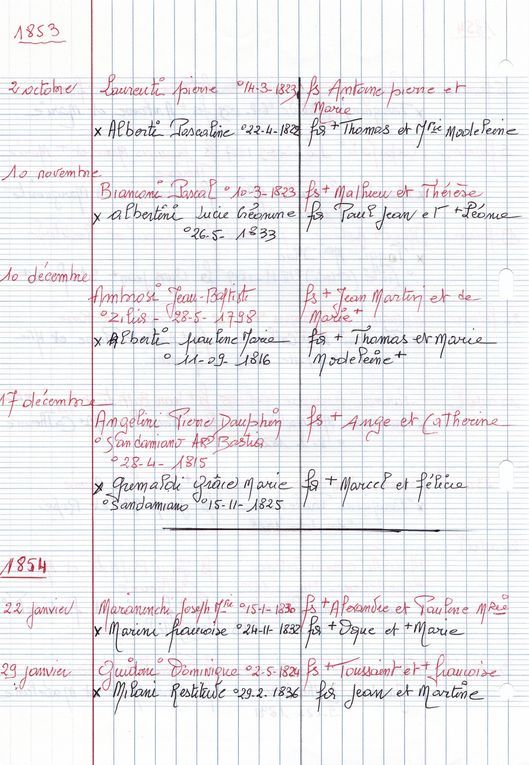 1853
2 octobre Laurenti pierre °14-3-1823 fs Antoine pierre et
Marie
x Alberti Pascaline °22-4-1822 fa + Thomas et Mrie Madeleine
10 novembre
Bianconi Pascal °10-3-1823 fs + Mathieu et Thérèse
x Albertini Lucie Léonine fa Paul Jean et + Léonie
°26-5-1833
10 décembre
Ambrosi Jean-Baptiste fs + Jean Martin et de
°Zilia - 28-5-1798 Marie +
x Alberti pauline Marie fa + Thomas et Marie
°11-09-1816 Modeleine +
17 décembre
Angelini Pierre Dauphin fs + Ange et Catherine
°Sandamiano Bastia
°28-4-1815
x Grimaldi Grâce Marie fa + Marcel et félicie
°Sandamiano °15-11-1825
1854
22 janvier Joseph Mrie °15-1-1830 fs + Alexandre et Pauline Mrie
x Marini francoise °24-11-1832 fa + et + Marie
29 janvier Guidoni Dominique °2-5-1824 fs + Toussaint et + francoise
x Milani Restitude °29-2-1836 fa Jean et Martine